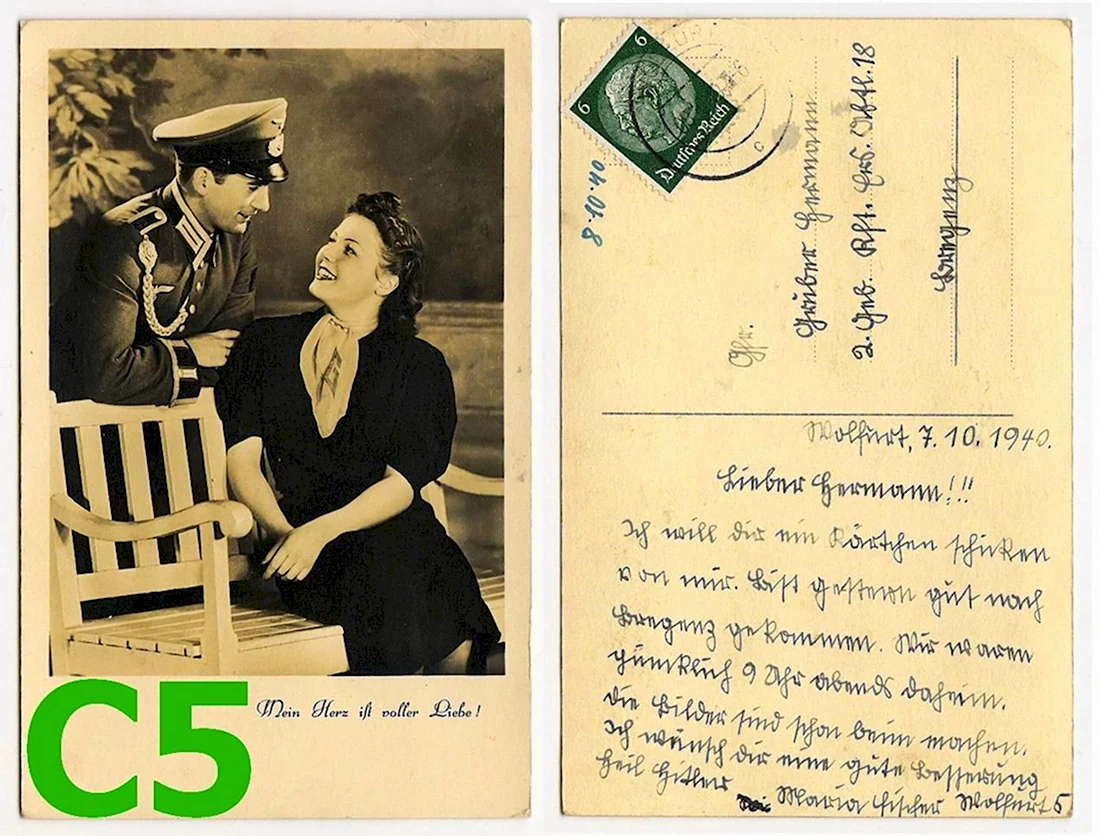 C5
Mein Herz ist voller Liebe!
6
6
Deutsches Reich
c
8.10.40
Gfr.
Gruber Hermann
2. Geb. Ers. Abtl. 18
Bregenz
Wolfurt, 7.10.1940.
Lieber Hermann!!!
Ich will dir ein Kärtchen schicken
von mir. Bist gestern gut nach
Bregenz gekommen. Wir waren
pünklich 9 Uhr abends daheim.
die Bilder sind schon beim machen.
Ich wünsch dir eine gute Besserung
Heil Hitler Maria Fischer Wolfurt 5